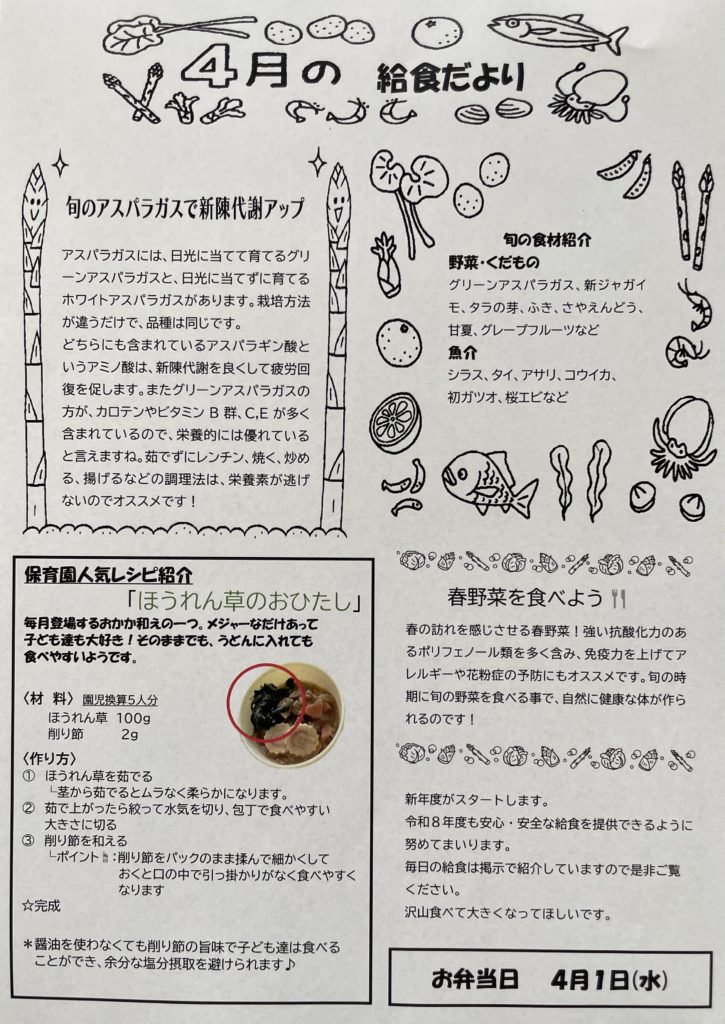 4月の 給食だより
旬のアスパラガスで新陳代謝アップ
アスパラガスには、日光に当てて育てるグリ
ーンアスパラガスと、日光に当てずに育てる
ホワイトアスパラガスがあります。栽培方法
が違うだけで、品種は同じです。
どちらにも含まれているアスパラギン酸と
いうアミノ酸は、新陳代謝を良くして疲労回
復を促します。またグリーンアスパラガスの
方が、カロテンやビタミン B 群、C,E が多く
含まれているので、栄養的には優れている
と言えますね。茹でずにレンチン、焼く、炒め
る、揚げるなどの調理法は、栄養素が逃げ
ないのでオススメです！
旬の食材紹介
野菜・くだもの
グリーンアスパラガス、新ジャガイ
モ、タラの芽、ふき、さやえんどう、
甘夏、グレープフルーツなど
魚介
シラス、タイ、アサリ、コウイカ、
初ガツオ、桜エビなど
保育園人気レシピ紹介
「ほうれん草のおひたし」
毎月登場するおかか和えの一つ。メジャーなだけあって
子ども達も大好き！そのままでも、うどんに入れても
食べやすいようです。
〈材 料〉 園児換算5人分
ほうれん草 100g
削り節 2g
〈作り方〉
① ほうれん草を茹でる
└茎から茹でるとムラなく柔らかになります。
② 茹で上がったら絞って水気を切り、包丁で食べやすい
大きさに切る
③ 削り節を和える
└ポイント☝：削り節をパックのまま揉んで細かくして
おくと口の中で引っ掛かりがなく食べやすく
なります
☆完成
＊醤油を使わなくても削り節の旨味で子ども達は食べる
ことができ、余分な塩分摂取を避けられます♪
春野菜を食べよう🍴
春の訪れを感じさせる春野菜！強い抗酸化力のあ
るポリフェノール類を多く含み、免疫力を上げてア
レルギーや花粉症の予防にもオススメです。旬の時
期に旬の野菜を食べる事で、自然に健康な体が作
られるのです！
新年度がスタートします。
令和８年度も安心・安全な給食を提供できるように
努めてまいります。
毎日の給食は掲示で紹介していますので是非ご覧
ください。
沢山食べて大きくなってほしいです。
お弁当日 4月1日(水)